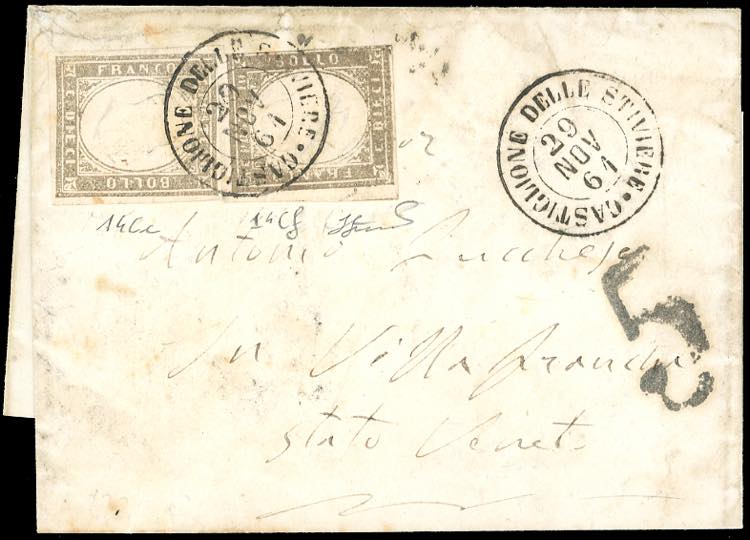 FRANCO BOLLO
BOLLO FRANCO
CASTIGLIONE DELLE STIVIERE
29
NOV
61
CASTIGLIONE DELLE STIVIERE
29
NOV
61
14Cc
14Cf
Antonio Lucchese
In Villafranca
Stato Veneto